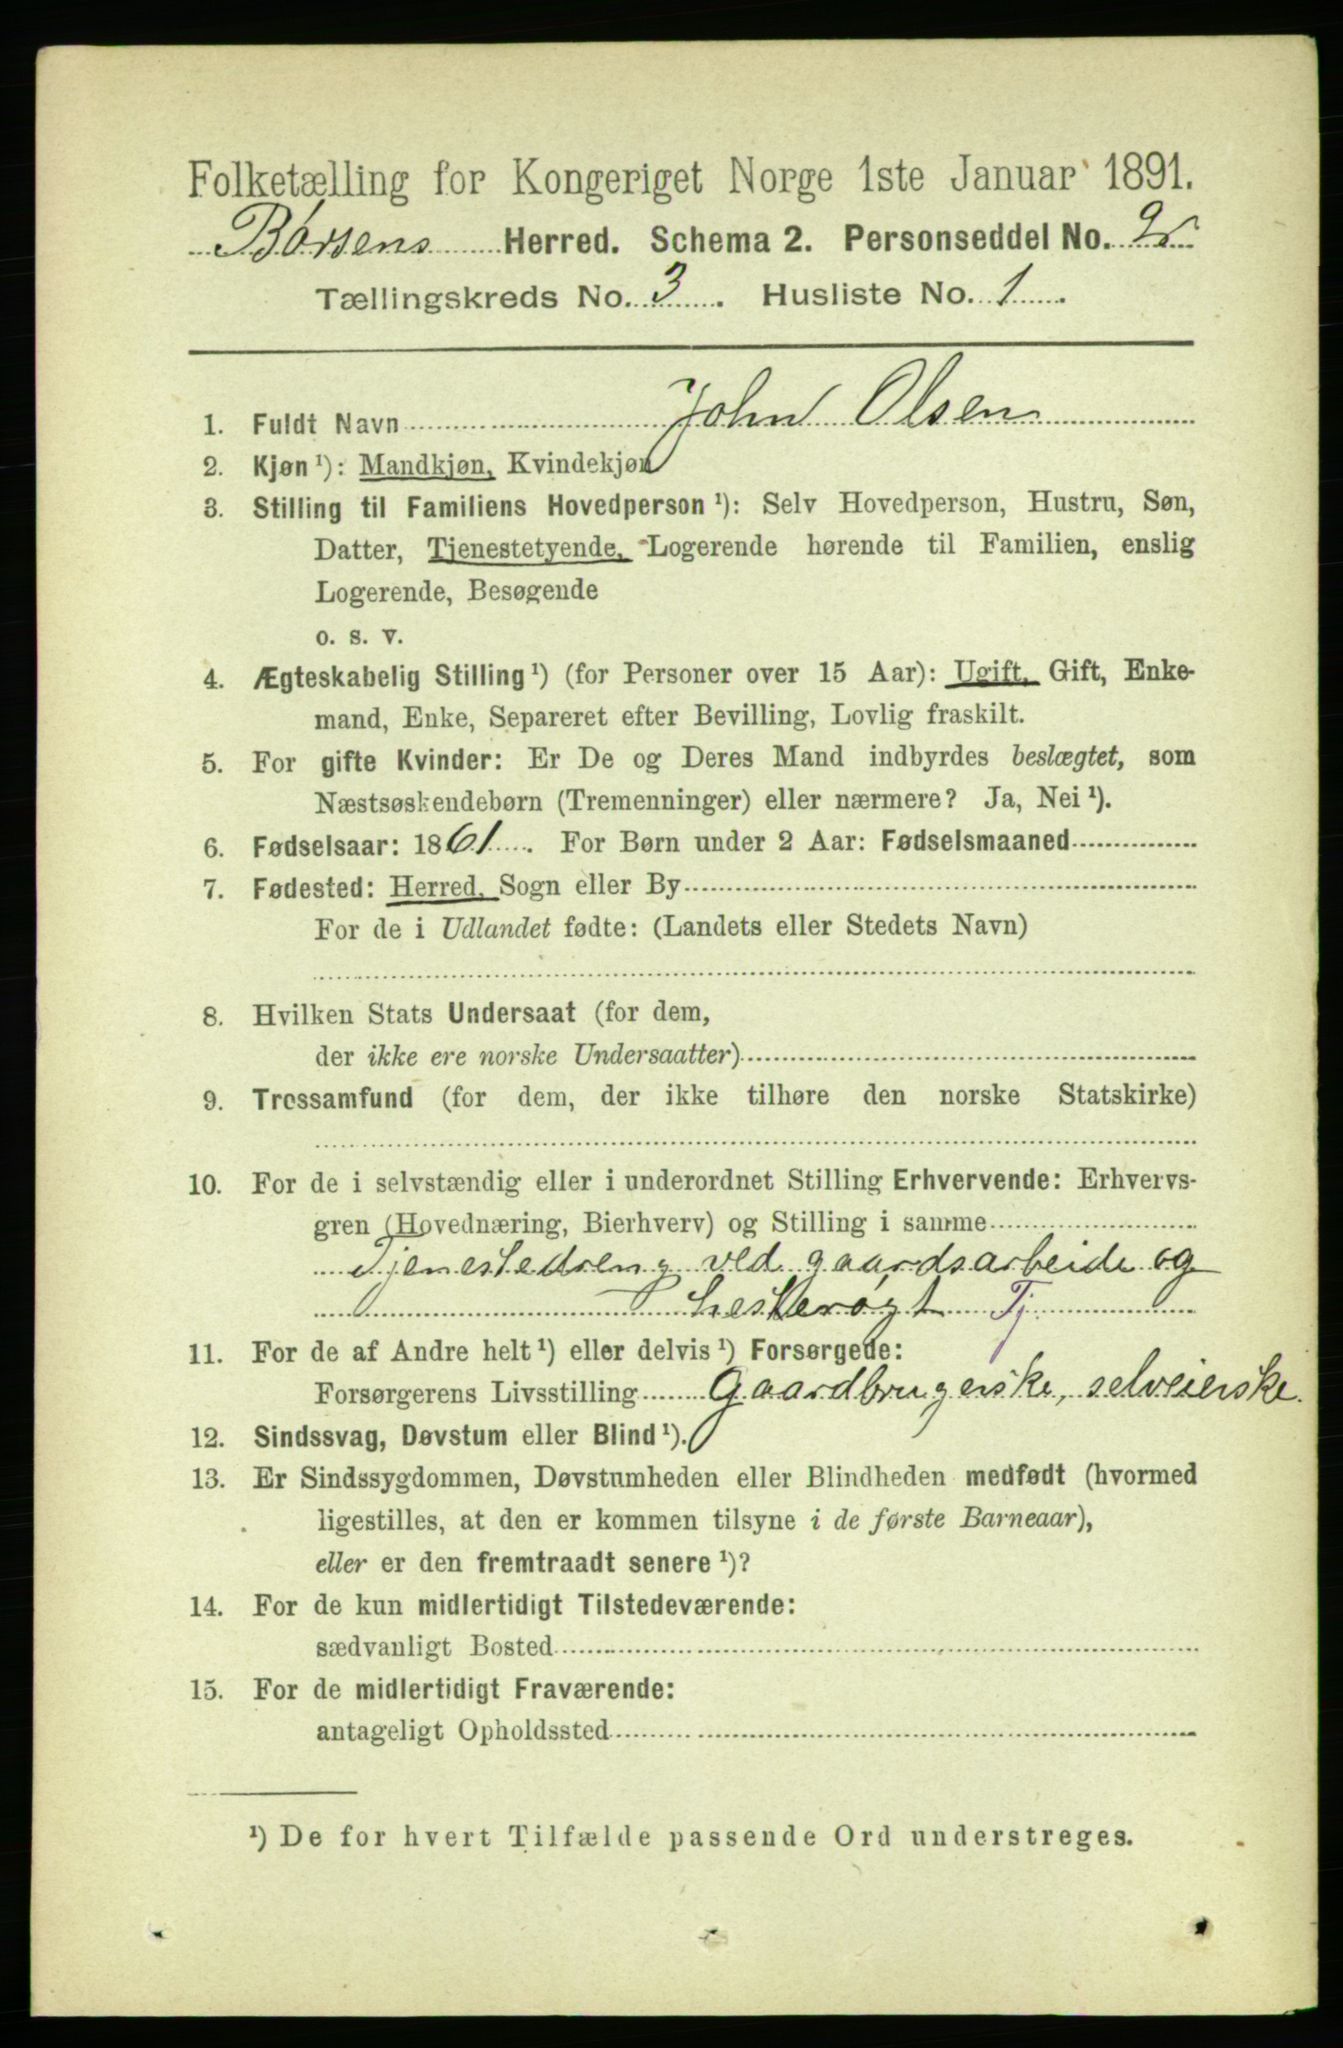 Folketælling for Kongeriget Norge 1ste Januar 1891.
Børsens Herred. Schema 2. Personseddel No. 2
Tællingskreds No. 3. Husliste No. 1.
1. Fuldt Navn John Olsen
2. Kjøn ¹): Mandkjøn, Kvindekjøn
3. Stilling til Familiens Hovedperson ¹): Selv Hovedperson, Hustru, Søn,
Datter, Tjenestetyende, Logerende hørende til Familien, enslig
Logerende, Besøgende
o. s. v.
4. Ægteskabelig Stilling ¹) (for Personer over 15 Aar): Ugift, Gift, Enke-
mand, Enke, Separeret efter Bevilling, Lovlig fraskilt.
5. For gifte Kvinder: Er De og Deres Mand indbyrdes beslægtet, som
Næstsøskendebørn (Tremenninger) eller nærmere? Ja, Nei ¹).
6. Fødselsaar: 1861. For Børn under 2 Aar: Fødselsmaaned
7. Fødested: Herred, Sogn eller By
For de i Udlandet fødte: (Landets eller Stedets Navn)
8. Hvilken Stats Undersaat (for dem,
der ikke ere norske Undersaatter)
9. Trossamfund (for dem, der ikke tilhøre den norske Statskirke)
10. For de i selvstændig eller i underordnet Stilling Erhvervende: Erhvervs-
gren (Hovednæring, Bierhverv) og Stilling i samme
Tjenestedreng ved gaardsarbeide og
hesterøgt Tj.
11. For de af Andre helt ¹) eller delvis ¹) Forsørgede:
Forsørgerens Livsstilling Gaardbrugerske, selveierske.
12. Sindssvag, Døvstum eller Blind ¹).
13. Er Sindssygdommen, Døvstumheden eller Blindheden medfødt (hvormed
ligestilles, at den er kommen tilsyne i de første Barneaar),
eller er den fremtraadt senere ¹)?
14. For de kun midlertidigt Tilstedeværende:
sædvanligt Bosted
15. For de midlertidigt Fraværende:
antageligt Opholdssted
¹) De for hvert Tilfælde passende Ord understreges.